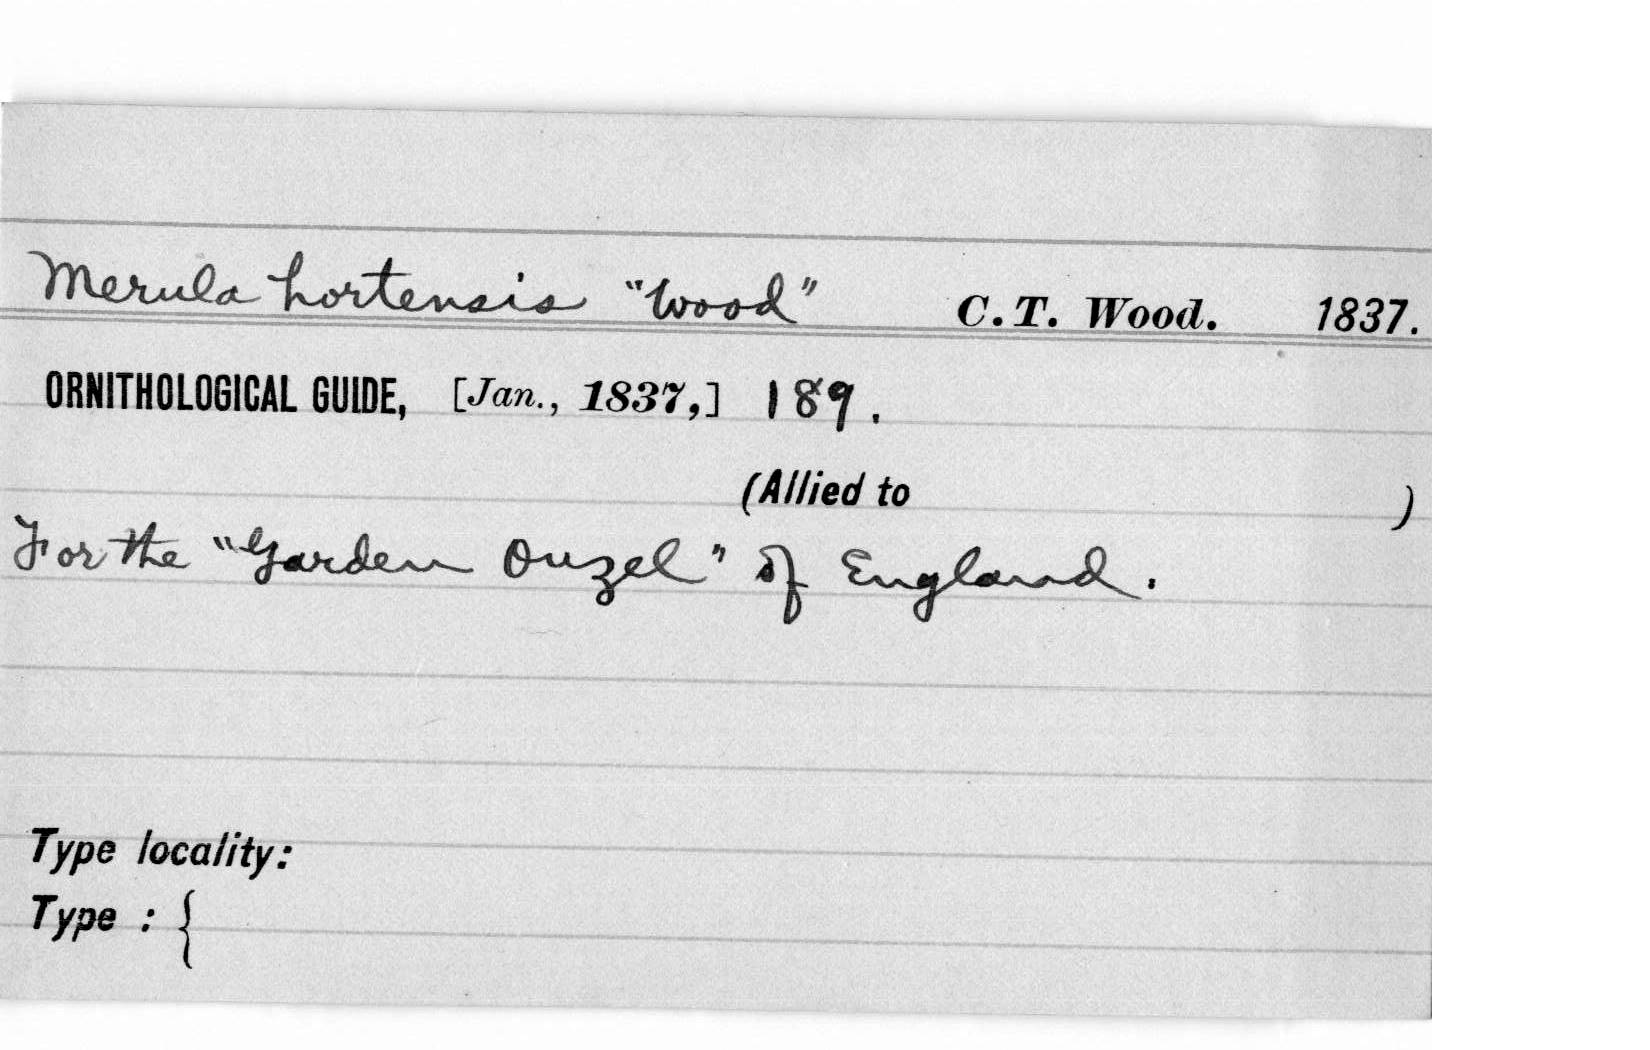 Merula hortensis "Wood" C. T. Wood. 1837.
ORNITHOLOGICAL GUIDE, [Jan., 1837,] 189.
(Allied to )
For the "Garden Ouzel" of England.
Type locality:
Type : {